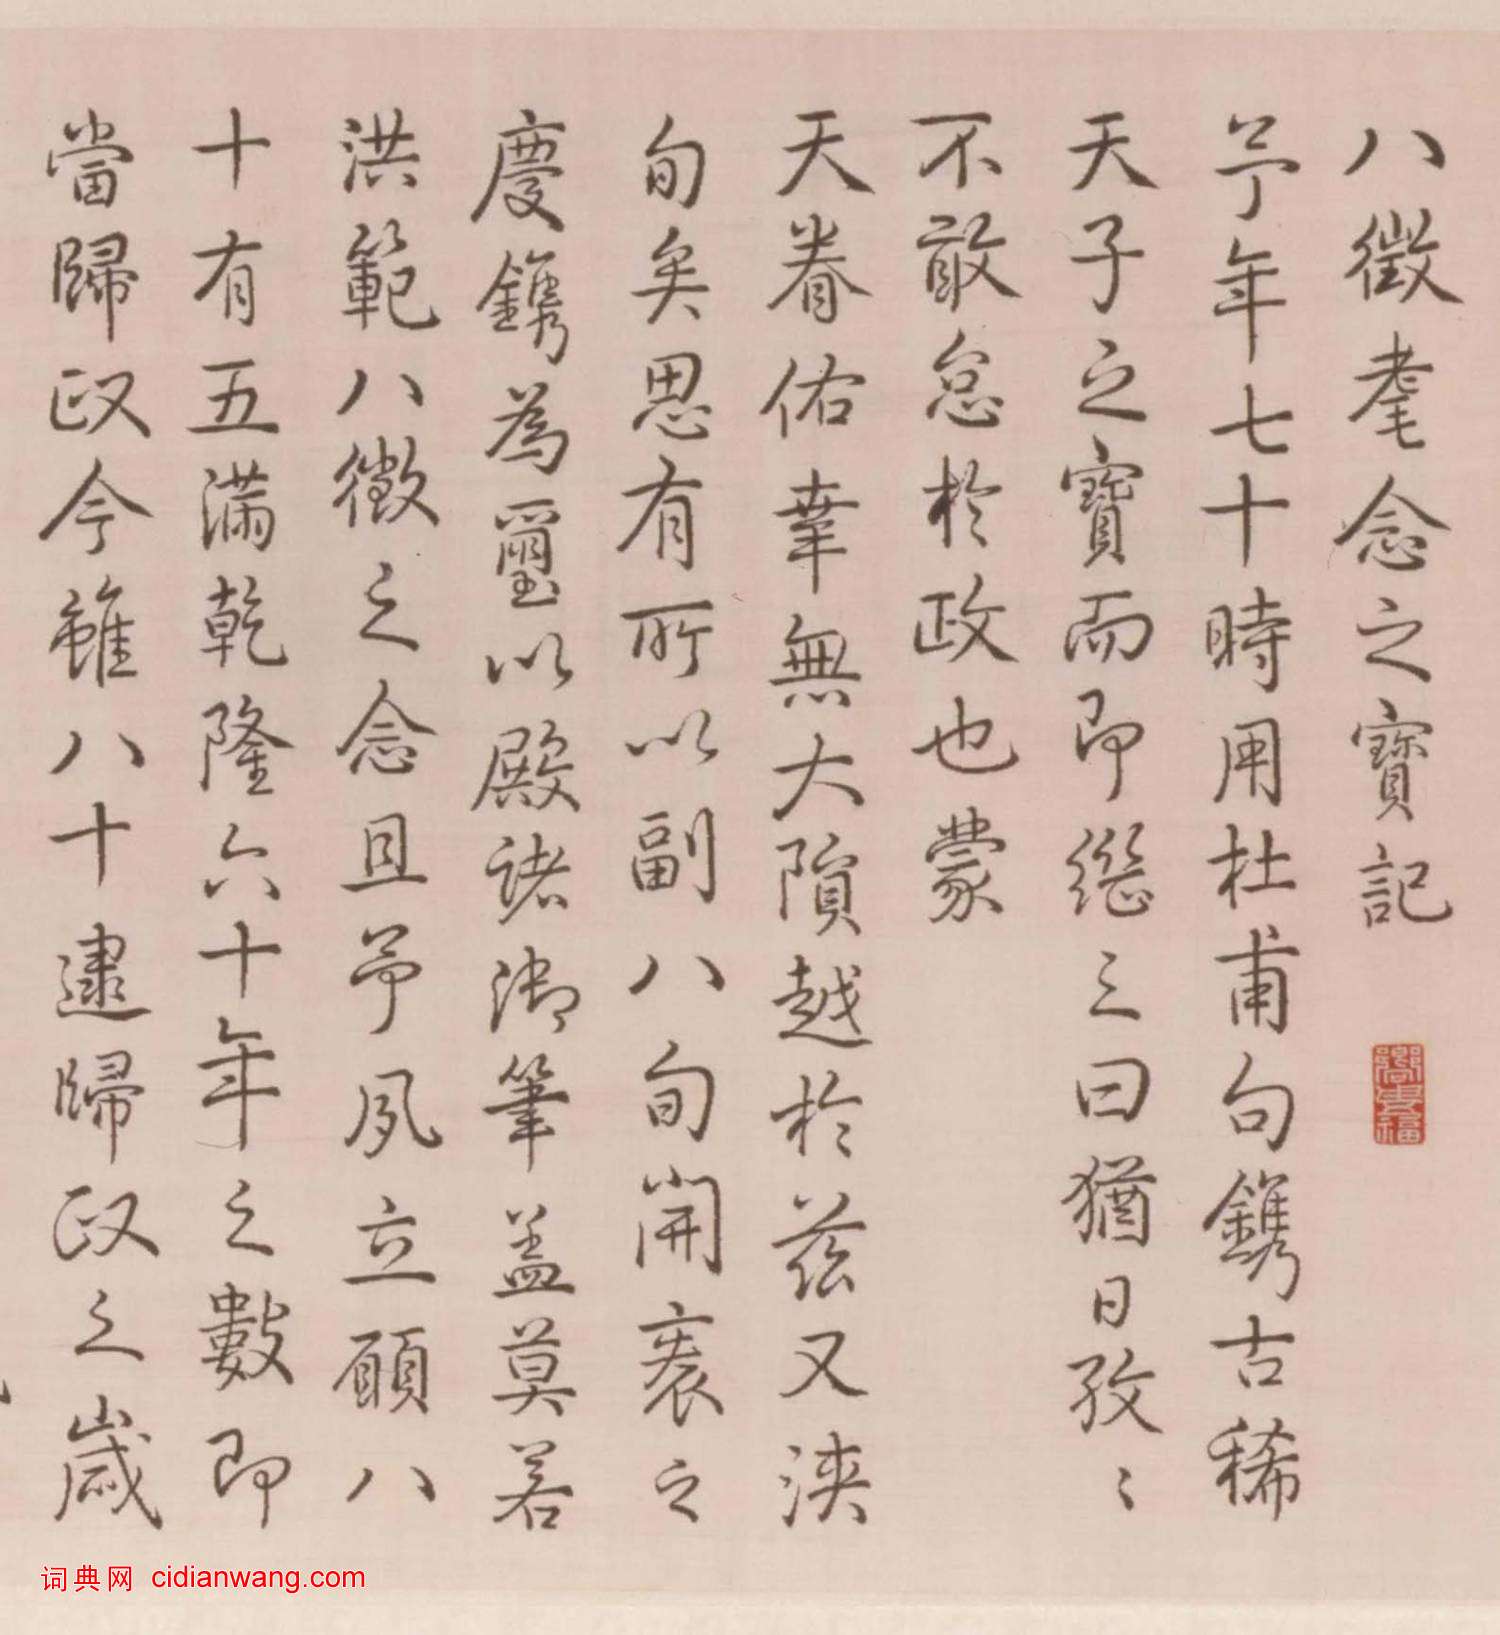 八徵耄念之寶記
予年七十時用杜甫句鐫古稀
天子之寶而即繼之曰猶日孜〻
不敢怠於政也蒙
天眷佑幸無大隕越於茲又浹
旬矣思有所以副八旬開袠之
慶鐫為璽以殿諸御筆蓋莫若
洪範八徵之念且予夙立願八
十有五滿乾隆六十年之數即
當歸政今雖八十逮歸政之歲
词典网 cidianwang.com